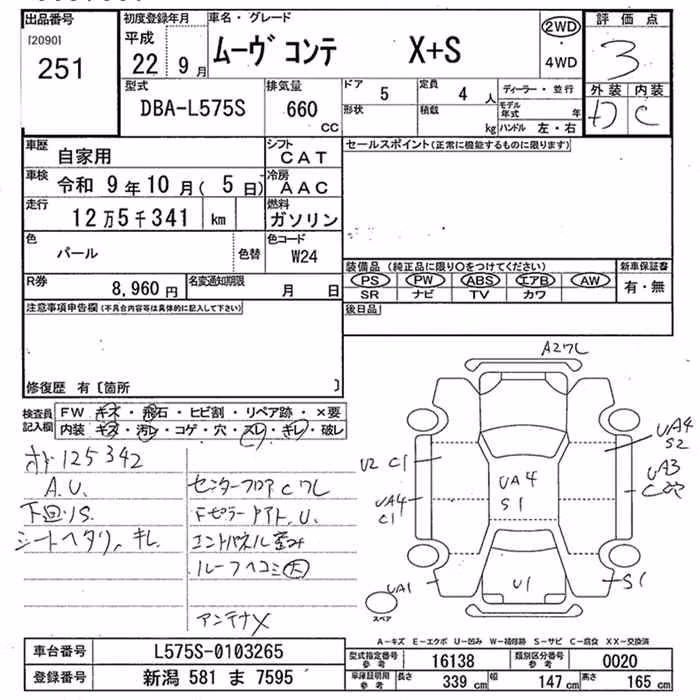 出品番号
[2090]
251
初度登録年月
平成
22年9月
車名・グレード
ムーヴ コンテ X+S
2WD
・
4WD
評価点
3
外装 内装
D C
型式
DBA-L575S
排気量
660
CC
ドア
5
形状
定員
4人
積載
kg
ディーラー・並行
モデル年式 年
ハンドル 左・右
車歴
自家用
シフト
CAT
車検
令和 9年10月(5日)
冷房
AAC
走行
12万5千341 km
燃料
ガソリン
色
パール
色替
色コード
W24
R券
8,960円
名変通知期限
月 日
セールスポイント(正常に機能するものに限ります)
装備品(純正品に限り○をつけてください)
新車保証書
PS PW ABS エアB AW
有・無
SR ナビ TV カワ
後日品
注意事項申告欄(不具合内容等は具体的に記入して下さい)
修復歴 有〔箇所 〕
検査員
記入欄
FW キズ・飛石・ヒビ割・リペア跡・×要
内装 キズ・汚レ・コゲ・穴・スレ・キレ・破レ
125342
A.U.
下回りS.
シートヘタリ、キレ
センターフロアCワレ
U.
エンドパネル歪み
ルーフヘコミ大
アンテナX
A2ワレ
UA4
S2
U2 C1
UA4
S1
UA3
UA4
C1
UA1
U1
S1
スペア
A-キズ E-エクボ U-凹み W-補修跡 S-サビ C-腐食 XX-交換済
車台番号
L575S-0103265
登録番号
新潟 581 ま 7595
型式指定番号
参考
16138
類別区分番号
参考
0020
車庫証明用
参考
長さ
339 cm
幅
147 cm
高さ
165 cm